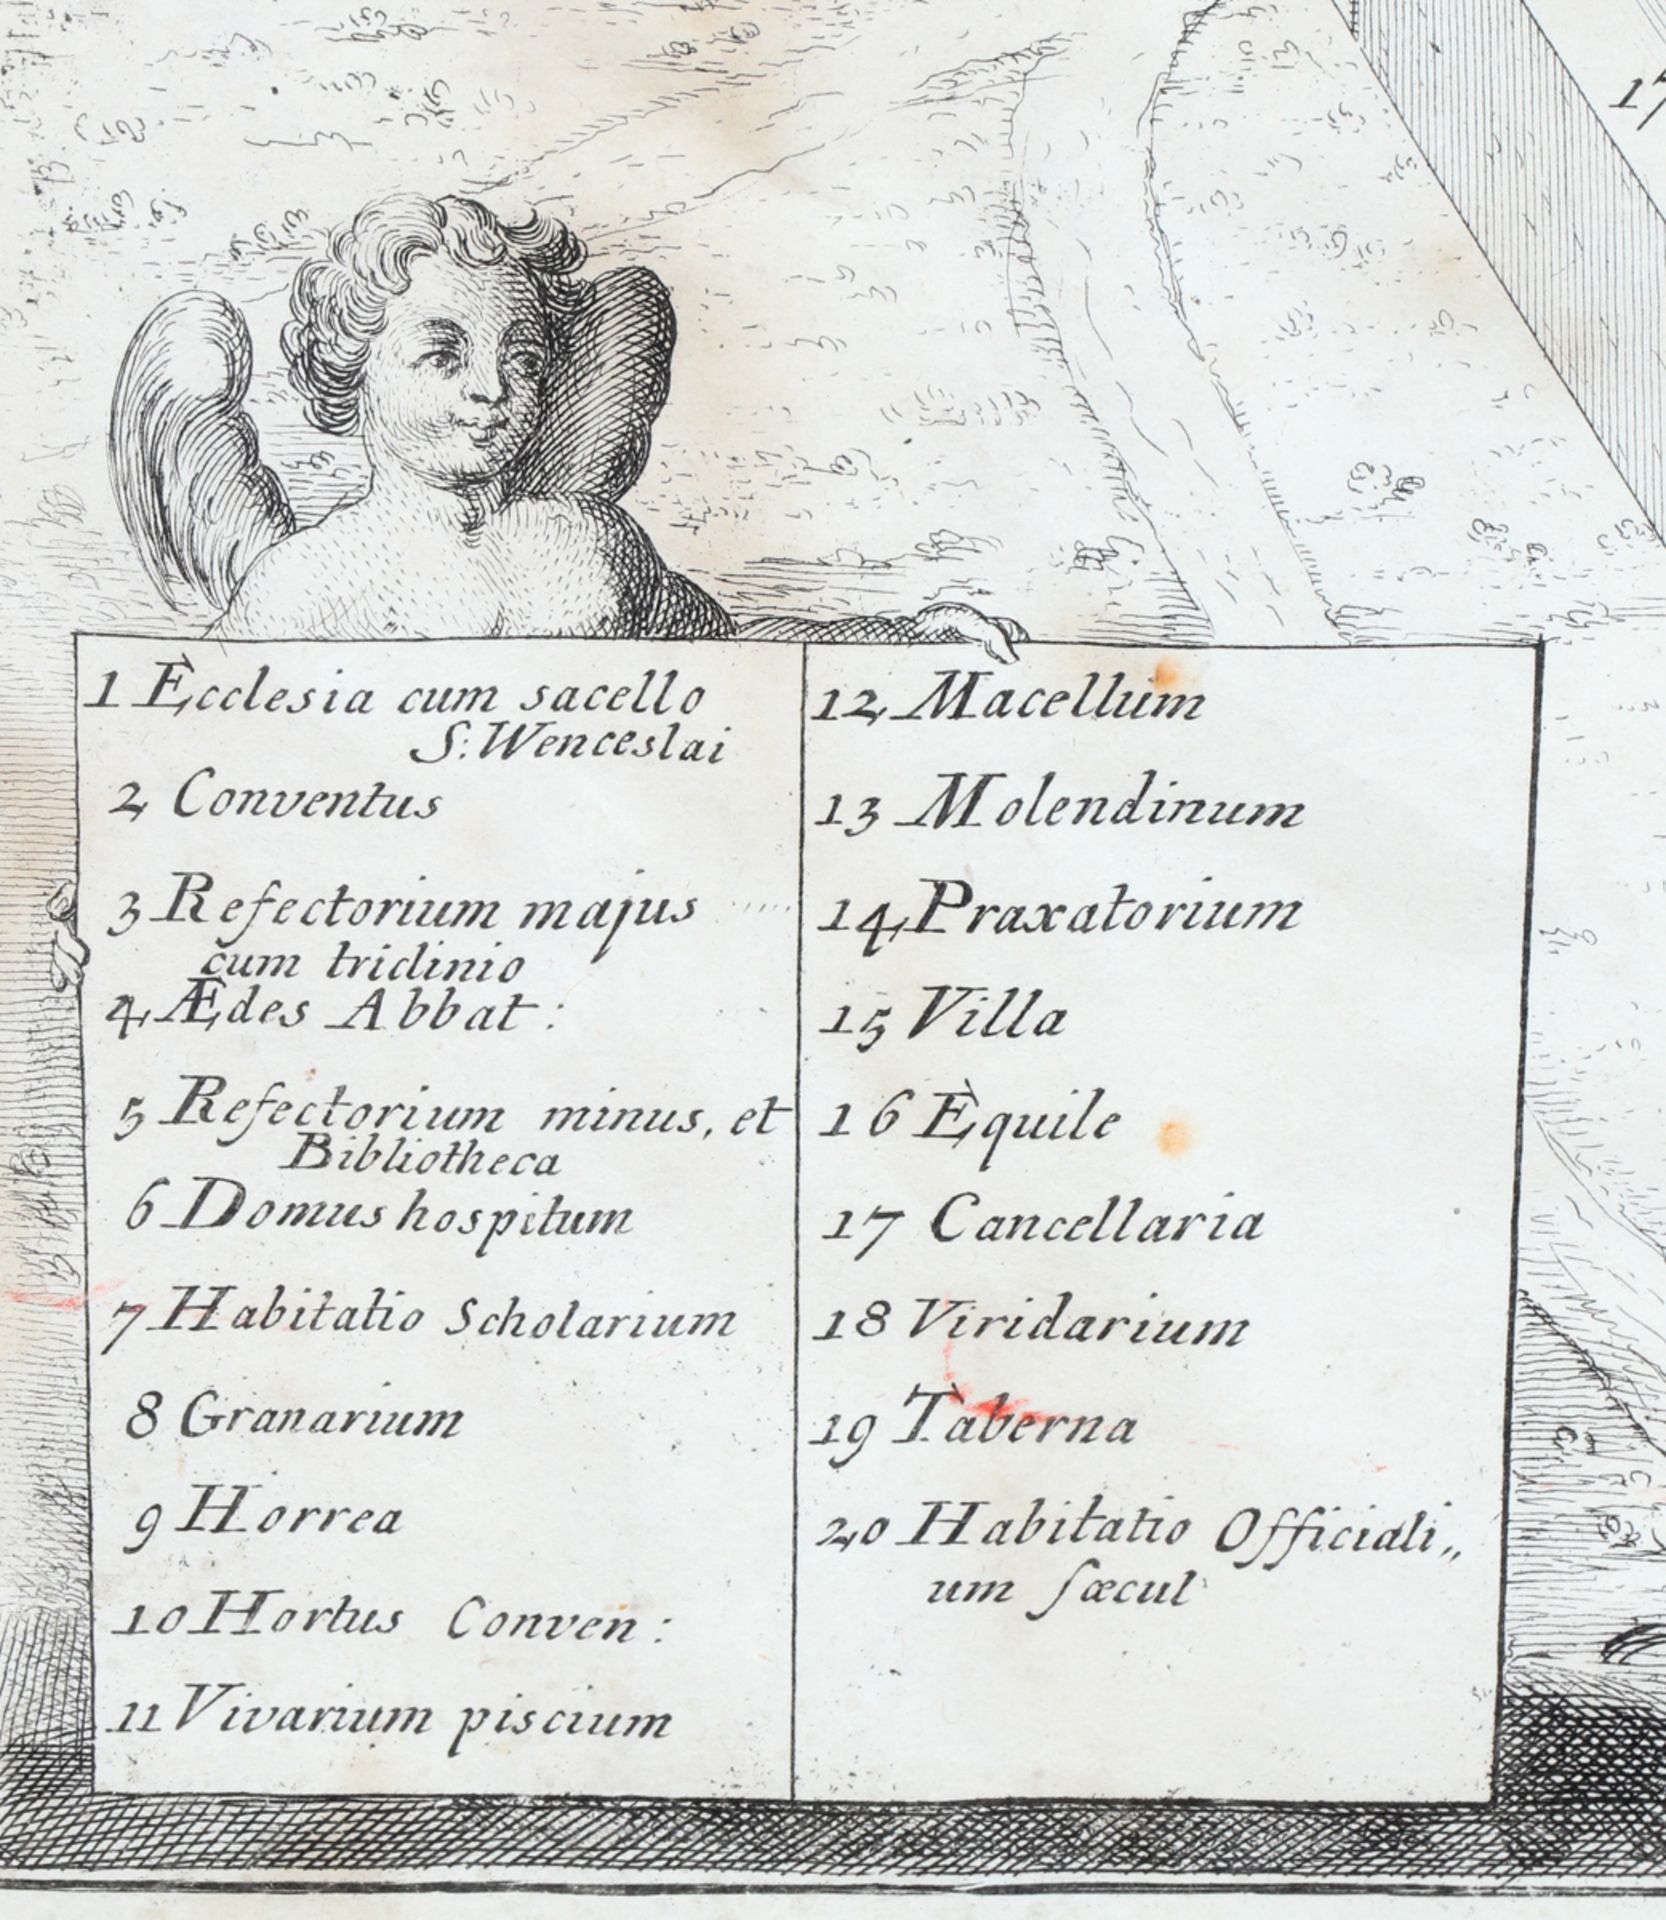 17
1 Ecclesia cum sacello
S: Wenceslai
2 Conventus
3 Refectorium majus
cum triclinio
4 Ædes Abbat:
5 Refectorium minus, et
Bibliotheca
6 Domus hospitum
7 Habitatio Scholarium
8 Granarium
9 Horrea
10 Hortus Conven:
11 Vivarium piscium
12 Macellum
13 Molendinum
14 Praxatorium
15 Villa
16 Equile
17 Cancellaria
18 Viridarium
19 Taberna
20 Habitatio Officiali„
um ſæcul: